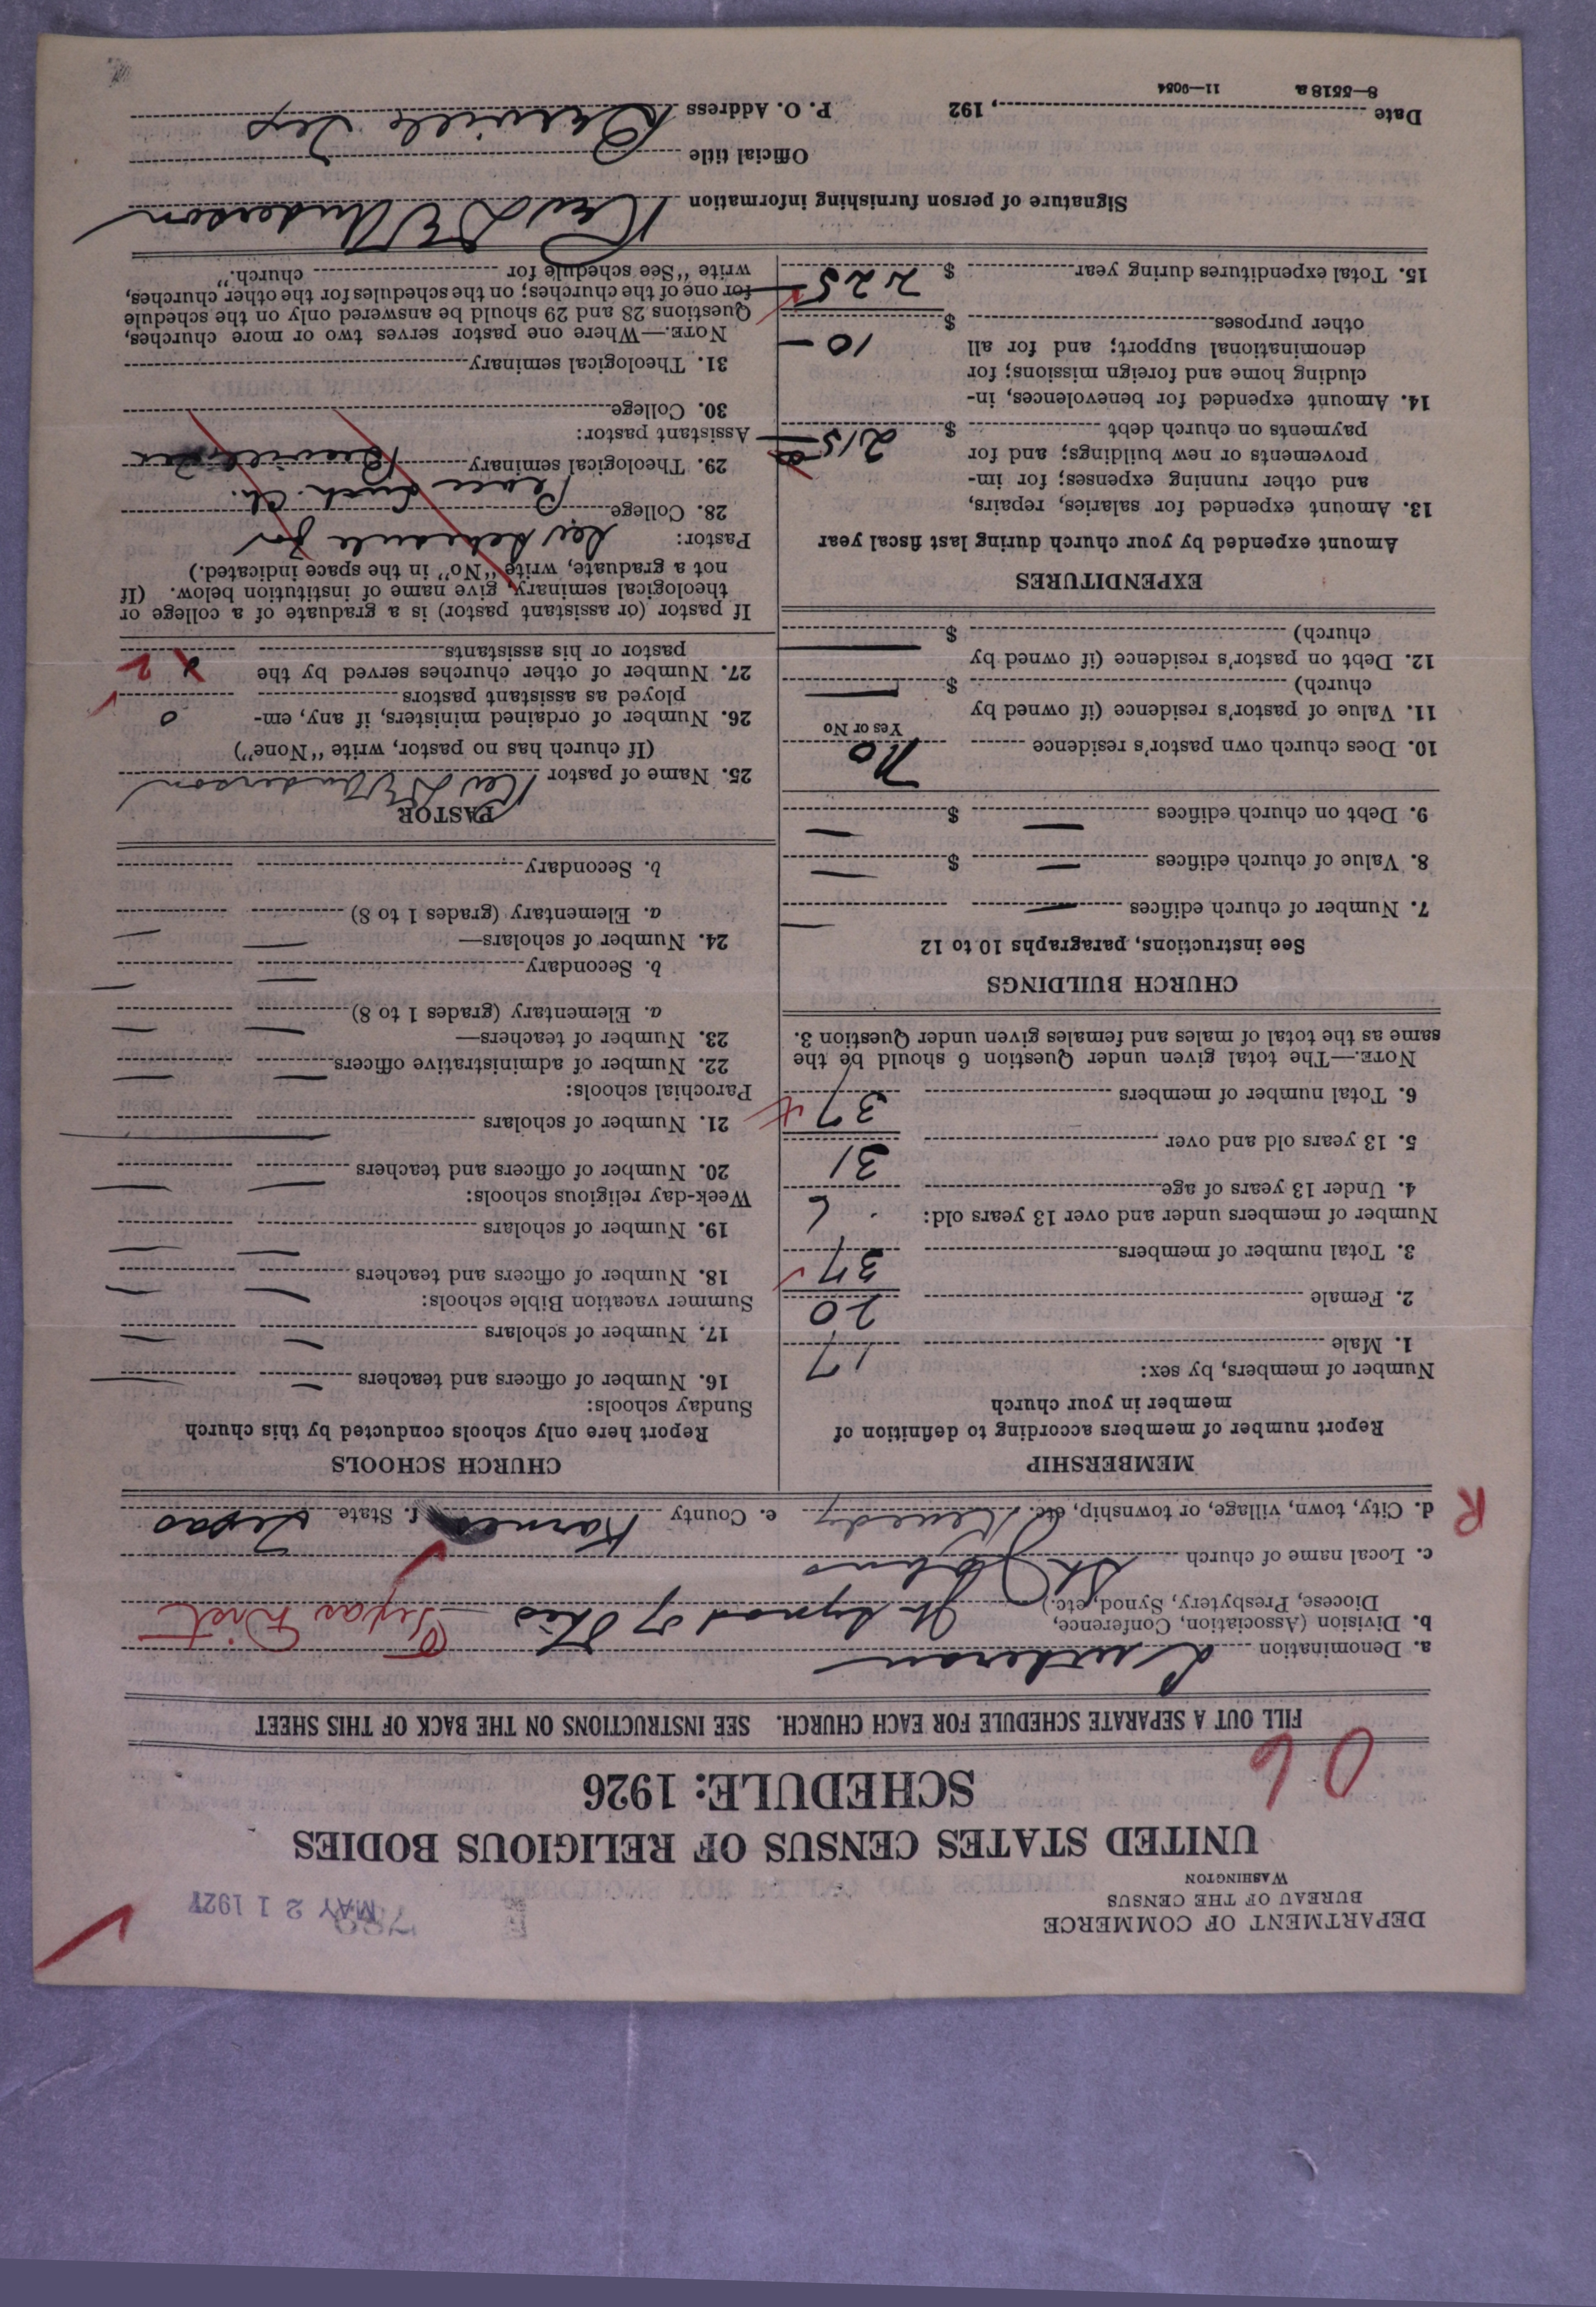 DEPARTMENT OF COMMERCE
BUREAU OF THE CENSUS
WASHINGTON
MAY 21 1927
UNITED STATES CENSUS OF RELIGIOUS BODIES
SCHEDULE: 1926
06
FILL OUT A SEPARATE SCHEDULE FOR EACH CHURCH. SEE INSTRUCTIONS ON THE BACK OF THIS SHEET
a. Denomination Lutheran
b. Division (Association, Conference, Diocese, Presbytery, Synod, etc.) Jt Synod of Ohio Texas Dist
c. Local name of church St Johns
R
d. City, town, village, or township, etc. Kenedy e. County Karnes f. State Texas
MEMBERSHIP
Report number of members according to definition of
member in your church
Number of members, by sex:
1. Male 17
2. Female 20
3. Total number of members 37
Number of members under and over 13 years old:
4. Under 13 years of age 6
5. 13 years old and over 31
6. Total number of members 37
NOTE.—The total given under Question 6 should be the
same as the total of males and females given under Question 3.
CHURCH BUILDINGS
See instructions, paragraphs 10 to 12
7. Number of church edifices —
8. Value of church edifices — $ —
9. Debt on church edifices — $ —
10. Does church own pastor's residence No
Yes or No
11. Value of pastor's residence (if owned by
church) $ —
12. Debt on pastor's residence (if owned by
church) $ —
EXPENDITURES
Amount expended by your church during last fiscal year
13. Amount expended for salaries, repairs,
and other running expenses; for im-
provements or new buildings; and for
payments on church debt $ 215
14. Amount expended for benevolences, in-
cluding home and foreign missions; for
denominational support; and for all
other purposes $ 10 —
15. Total expenditures during year $ 225
CHURCH SCHOOLS
Report here only schools conducted by this church
Sunday schools:
16. Number of officers and teachers —
17. Number of scholars —
Summer vacation Bible schools:
18. Number of officers and teachers —
19. Number of scholars —
Week-day religious schools:
20. Number of officers and teachers —
21. Number of scholars —
Parochial schools:
22. Number of administrative officers —
23. Number of teachers—
a. Elementary (grades 1 to 8) —
b. Secondary —
24. Number of scholars—
a. Elementary (grades 1 to 8) —
b. Secondary
PASTOR
25. Name of pastor Rev D E Anderson
(If church has no pastor, write "None")
26. Number of ordained ministers, if any, em-
ployed as assistant pastors 0
27. Number of other churches served by the
pastor or his assistants 2
If pastor (or assistant pastor) is a graduate of a college or
theological seminary, give name of institution below. (If
not a graduate, write "No" in the space indicated.)
Pastor: See Schedule for
28. College Peace Luth. Ch.
29. Theological seminary Beeville, Tex
Assistant pastor:
30. College
31. Theological seminary
NOTE.—Where one pastor serves two or more churches,
Questions 28 and 29 should be answered only on the schedule
for one of the churches; on the schedules for the other churches,
write "See schedule for church."
Signature of person furnishing information Rev D E Anderson
Official title
Date , 192 P. O. Address Beeville Tex
8—5518 a 11—9054